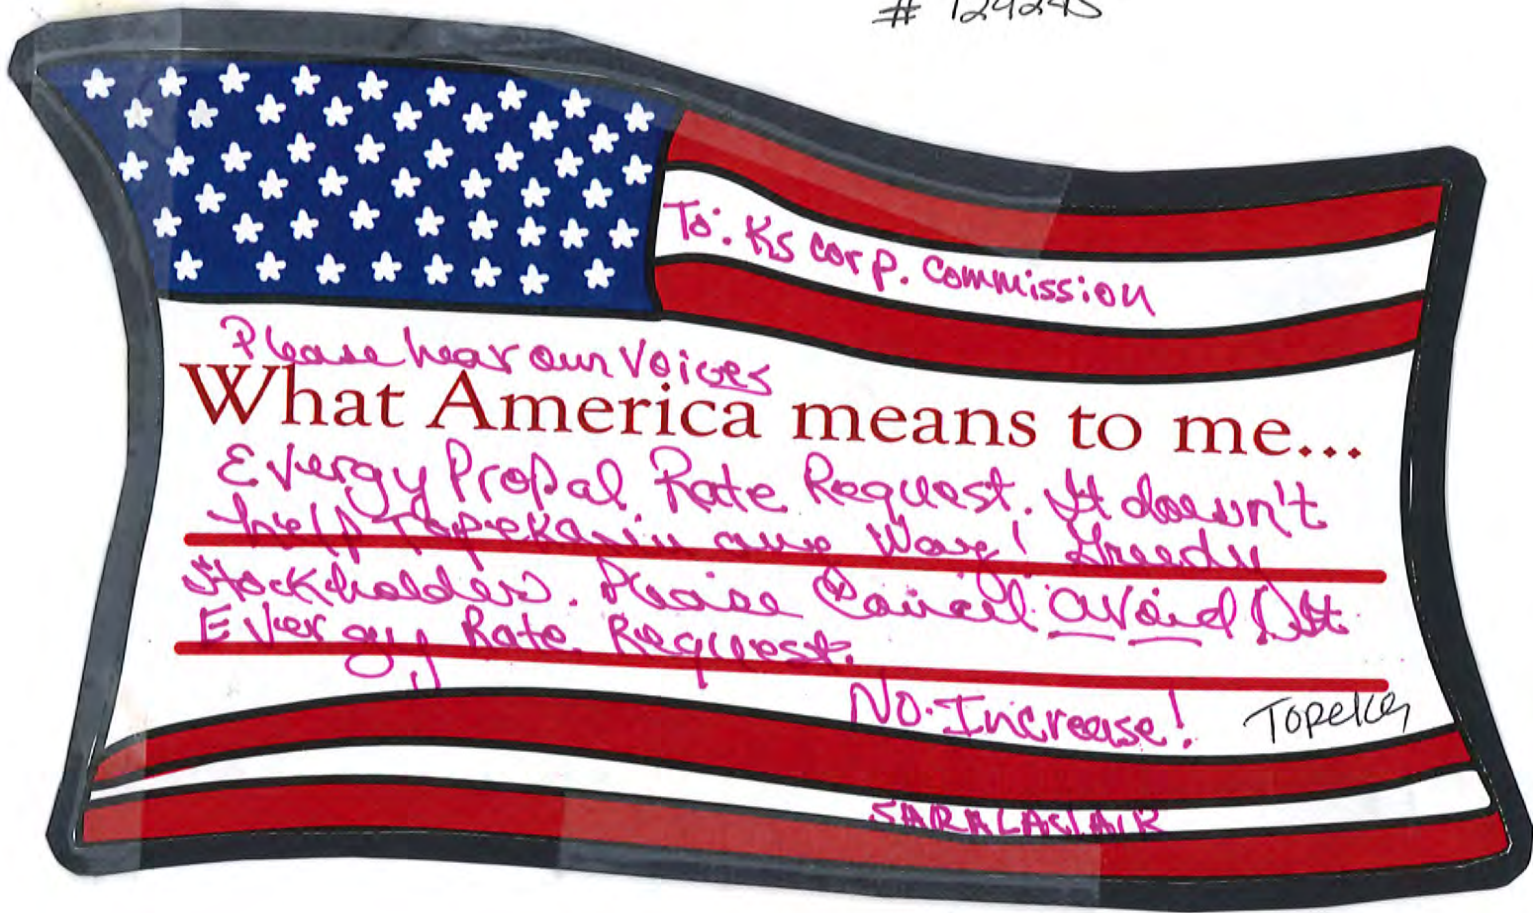 # 124245
To: Ks corp. Commission
Please hear our Voices
What America means to me...
Evergy Propal Rate Request. It doesn't
help Topekan in Way! Greedy
Stockholders. Please Council avoid
Evergy Rate Request.
No. Increase!
Topeka